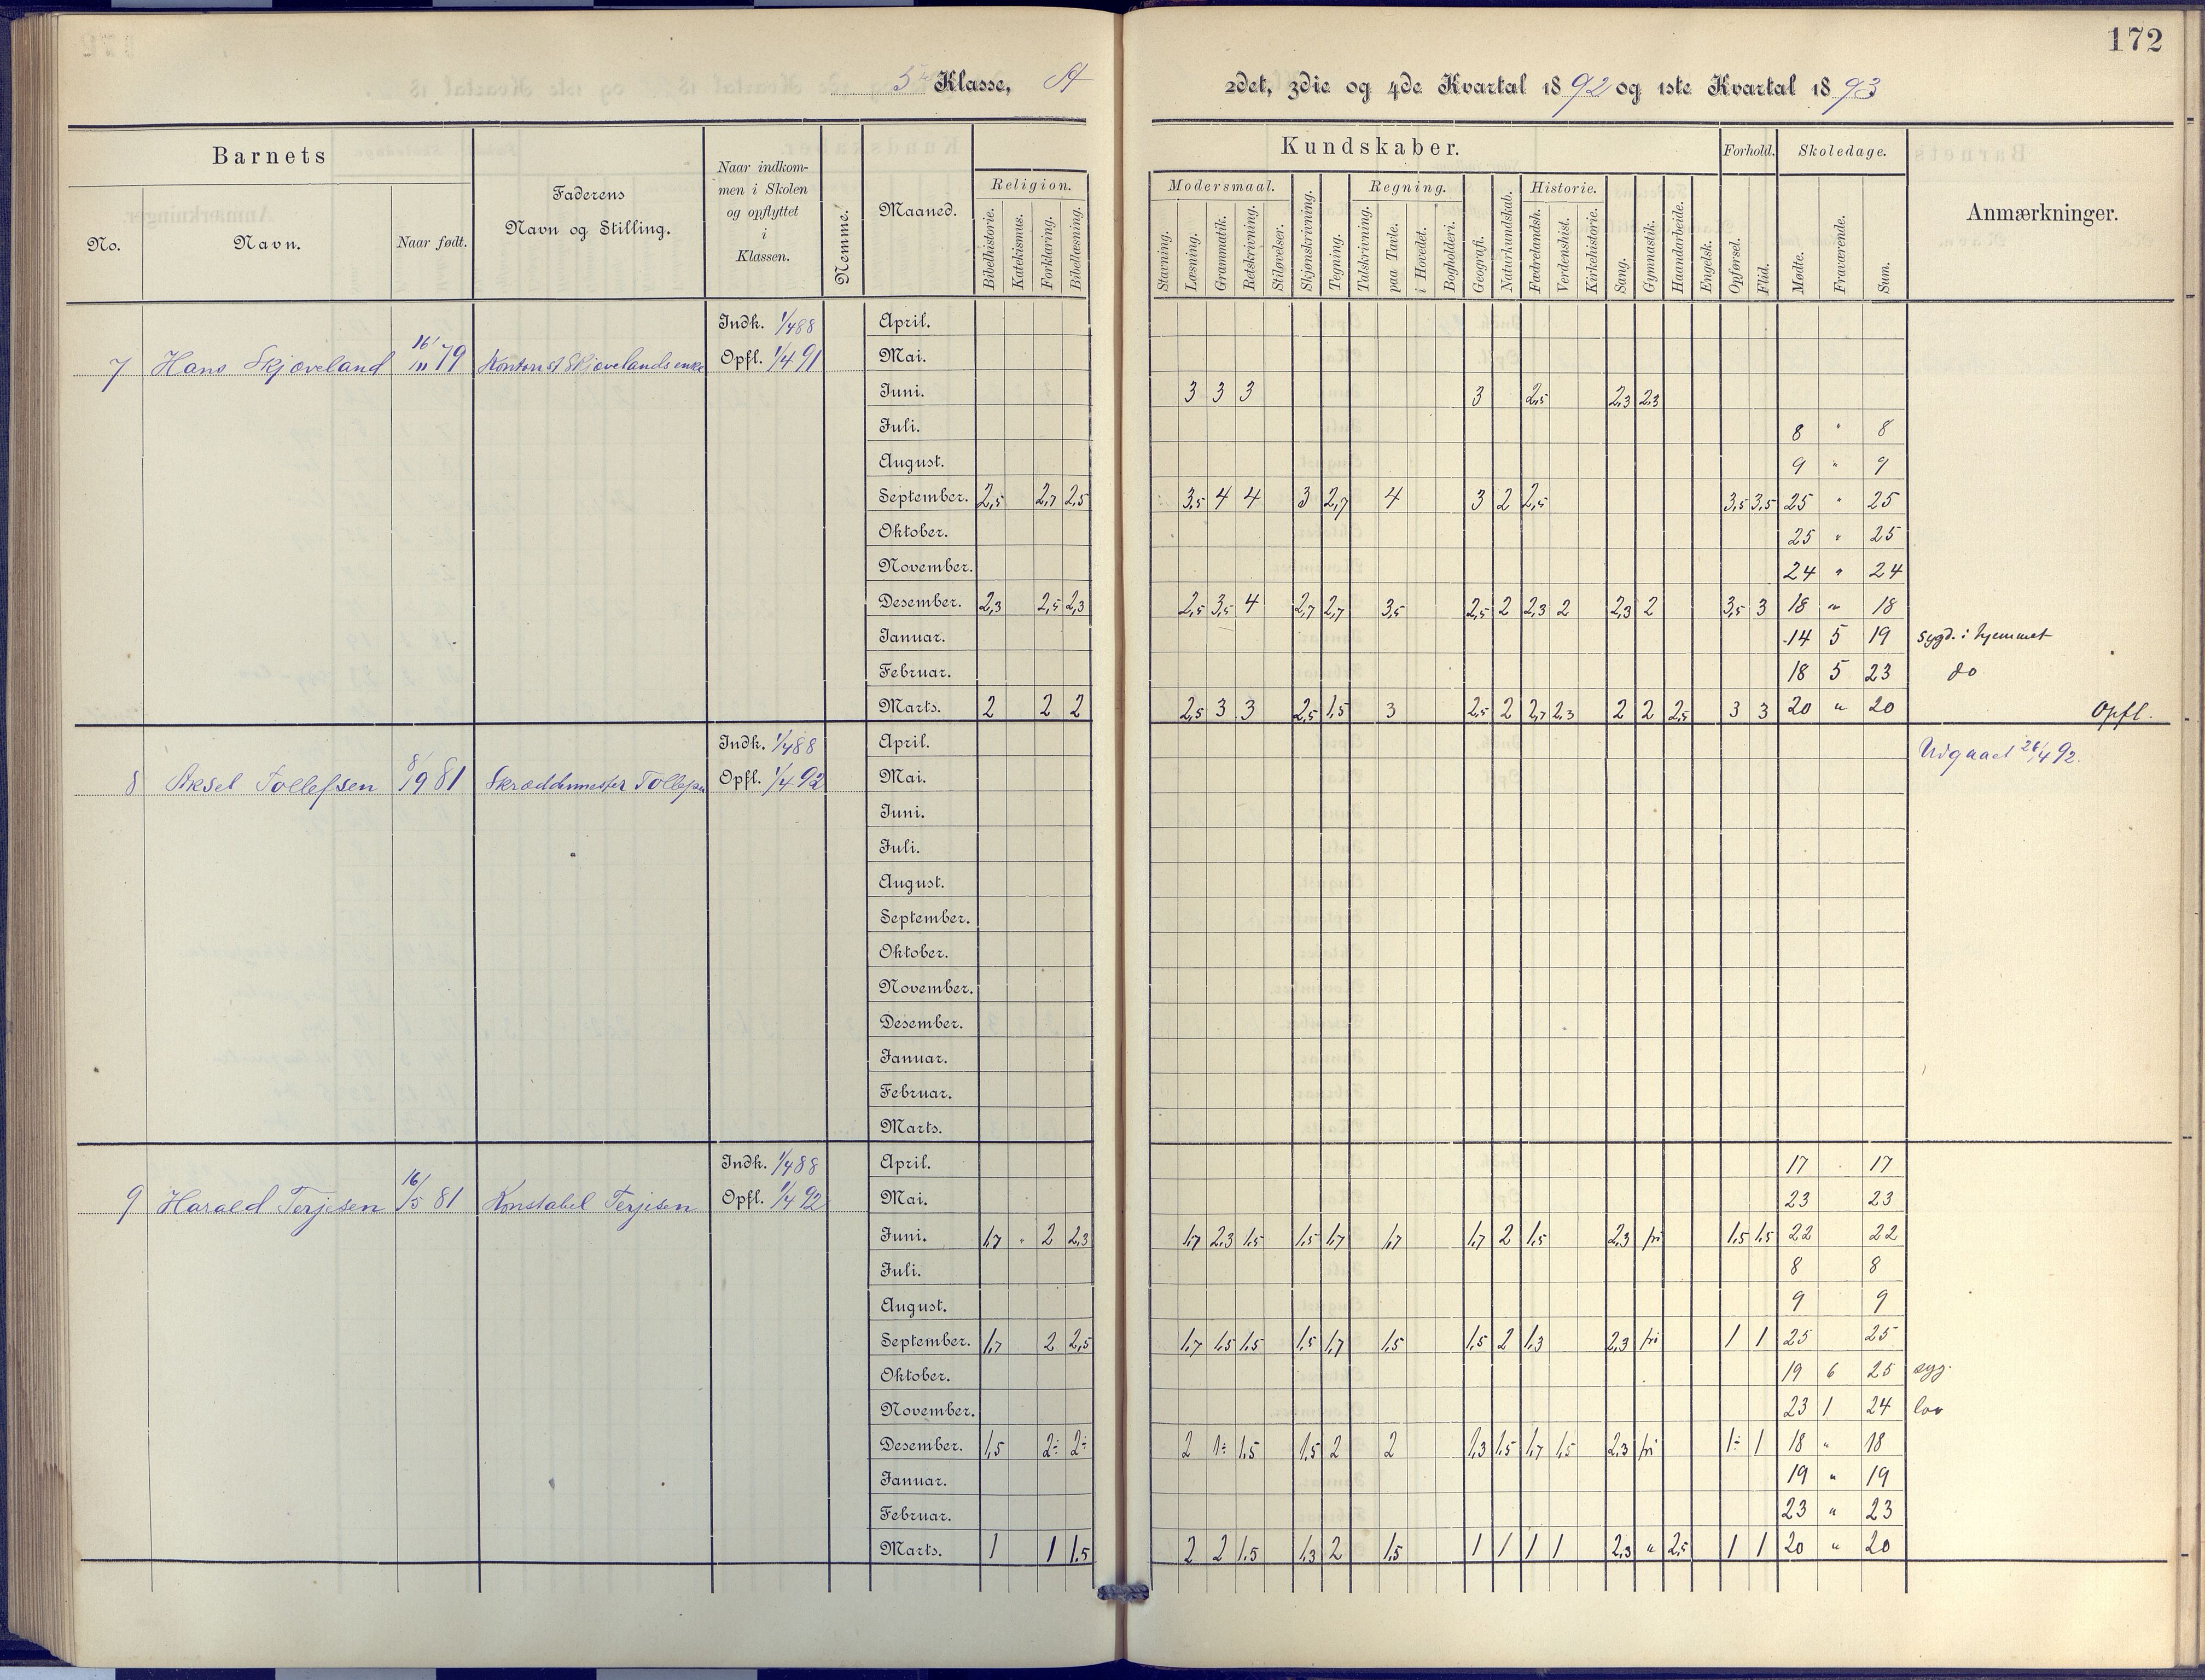 172
5te Klasse, A
2det, 3die og 4de Kvartal 1892 og 1ste Kvartal 1893
Barnets
No.
Navn.
Naar født.
Faderens
Navn og Stilling.
Naar indkom-
men i Skolen
og opflyttet
i
Klassen.
Nemme.
Maaned.
Kundskaber.
Religion.
Bibelhistorie. Katekismus. Forklaring. Bibellæsning.
Modersmaal.
Stavning. Læsning. Grammatik. Retskrivning. Stiløvelser.
Skjønskrivning. Tegning.
Regning.
Talskrivning. paa Tavle. i Hovedet. Bogholderi.
Geografi. Naturkundskab.
Historie.
Fædrelandsh. Verdenshist. Kirkehistorie.
Sang. Gymnastik. Haandarbeide. Engelsk.
Forhold.
Opførsel. Flid.
Skoledage.
Mødte. Fraværende. Sum.
Anmærkninger.
7 Hans Skjæveland 16/111 79 Kontorist Skjævelands enke Indk. 1/4 88 Opfl. 1/4 91
April.
Mai.
Juni. 3 3 3 3 2,5 2,3 2,3
Juli. 8 " 8
August. 9 " 9
September. 2,5 2,7 2,5 3,5 4 4 3 2,7 4 3 2 2,5 3,5 3,5 25 " 25
Oktober. 25 " 25
November. 24 " 24
Desember. 2,3 2,5 2,3 2,5 3,5 4 2,7 2,7 3,5 2,5 2 2,3 2 2,3 2 3,5 3 18 " 18
Januar. 14 5 19 sygd. i hjemmet
Februar. 18 5 23 do
Marts. 2 2 2 2,5 3 3 2,5 1,5 3 2,5 2 2,7 2,3 2 2 2,5 3 3 20 " 20 Opfl.
8 Aksel Tollefsen 8/9 81 Skræddermester Tollefsen Indk. 1/4 88 Opfl. 1/4 92
April. Udgaaet 26/4 92.
Mai.
Juni.
Juli.
August.
September.
Oktober.
November.
Desember.
Januar.
Februar.
Marts.
9 Harald Terjesen 16/5 81 Konstabel Terjesen Indk. 1/4 88 Opfl. 1/4 92
April. 17 . 17
Mai. 23 23
Juni. 1,7 " 2 2,3 1,7 2,3 1,5 1,5 1,7 1,7 1,7 2 1,5 2,3 fri 1,5 1,5 22 22
Juli. 8 8
August. 9 9
September. 1,7 2 2,5 1,7 1,5 1,5 1,5 1,7 1,5 1,5 2 1,3 2,3 fri 1 1 25 25
Oktober. 19 6 25 syg.
November. 23 1 24 lov
Desember. 1,5 2÷ 2÷ 2 1÷ 1,5 1,5 2 2 1,3 1,5 1,7 1,5 2,3 fri 1÷ 1 18 " 18
Januar. 19 " 19
Februar. 23 " 23
Marts. 1 1 1,5 2 2 1,5 1,3 2 1,5 1 1 1 1 2,3 " 2,5 1 1 20 " 20